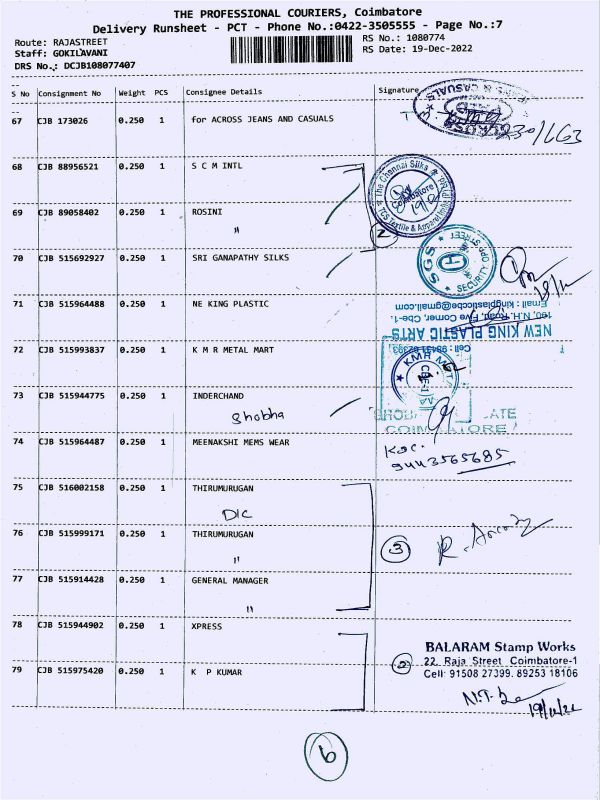 THE PROFESSIONAL COURIERS, Coimbatore
Delivery Runsheet - PCT - Phone No.:0422-3505555 - Page No.:7
Route: RAJASTREET
Staff: GOKILAVANI
DRS No.: DCJB108077407
RS No.: 1080774
RS Date: 19-Dec-2022
S No Consignment No Weight PCS Consignee Details Signature
67 CJB 173026 0.250 1 for ACROSS JEANS AND CASUALS
68 CJB 88956521 0.250 1 S C M INTL
The Chennai Silks
Coimbatore
TCS Textile & Apparel
69 CJB 89058402 0.250 1 ROSINI
"
2
70 CJB 515692927 0.250 1 SRI GANAPATHY SILKS
SGS
SECURITY OPP STREET
71 CJB 515964488 0.250 1 NE KING PLASTIC
NEW KING PLASTIC ARTS
160, N.H. Road, Five Corner, Cbe-1.
Email: kingplasticcbe@gmail.com
72 CJB 515993837 0.250 1 K M R METAL MART
KMR
CBE-1
73 CJB 515944775 0.250 1 INDERCHAND
Shobha
COIMBATORE
74 CJB 515964487 0.250 1 MEENAKSHI MEMS WEAR
9443565685
75 CJB 516002158 0.250 1 THIRUMURUGAN
DIC
76 CJB 515999171 0.250 1 THIRUMURUGAN
"
3
77 CJB 515914428 0.250 1 GENERAL MANAGER
"
78 CJB 515944902 0.250 1 XPRESS
BALARAM Stamp Works
22, Raja Street Coimbatore-1
Cell: 91508 27399. 89253 18106
2
79 CJB 515975420 0.250 1 K P KUMAR
19/12/22
6